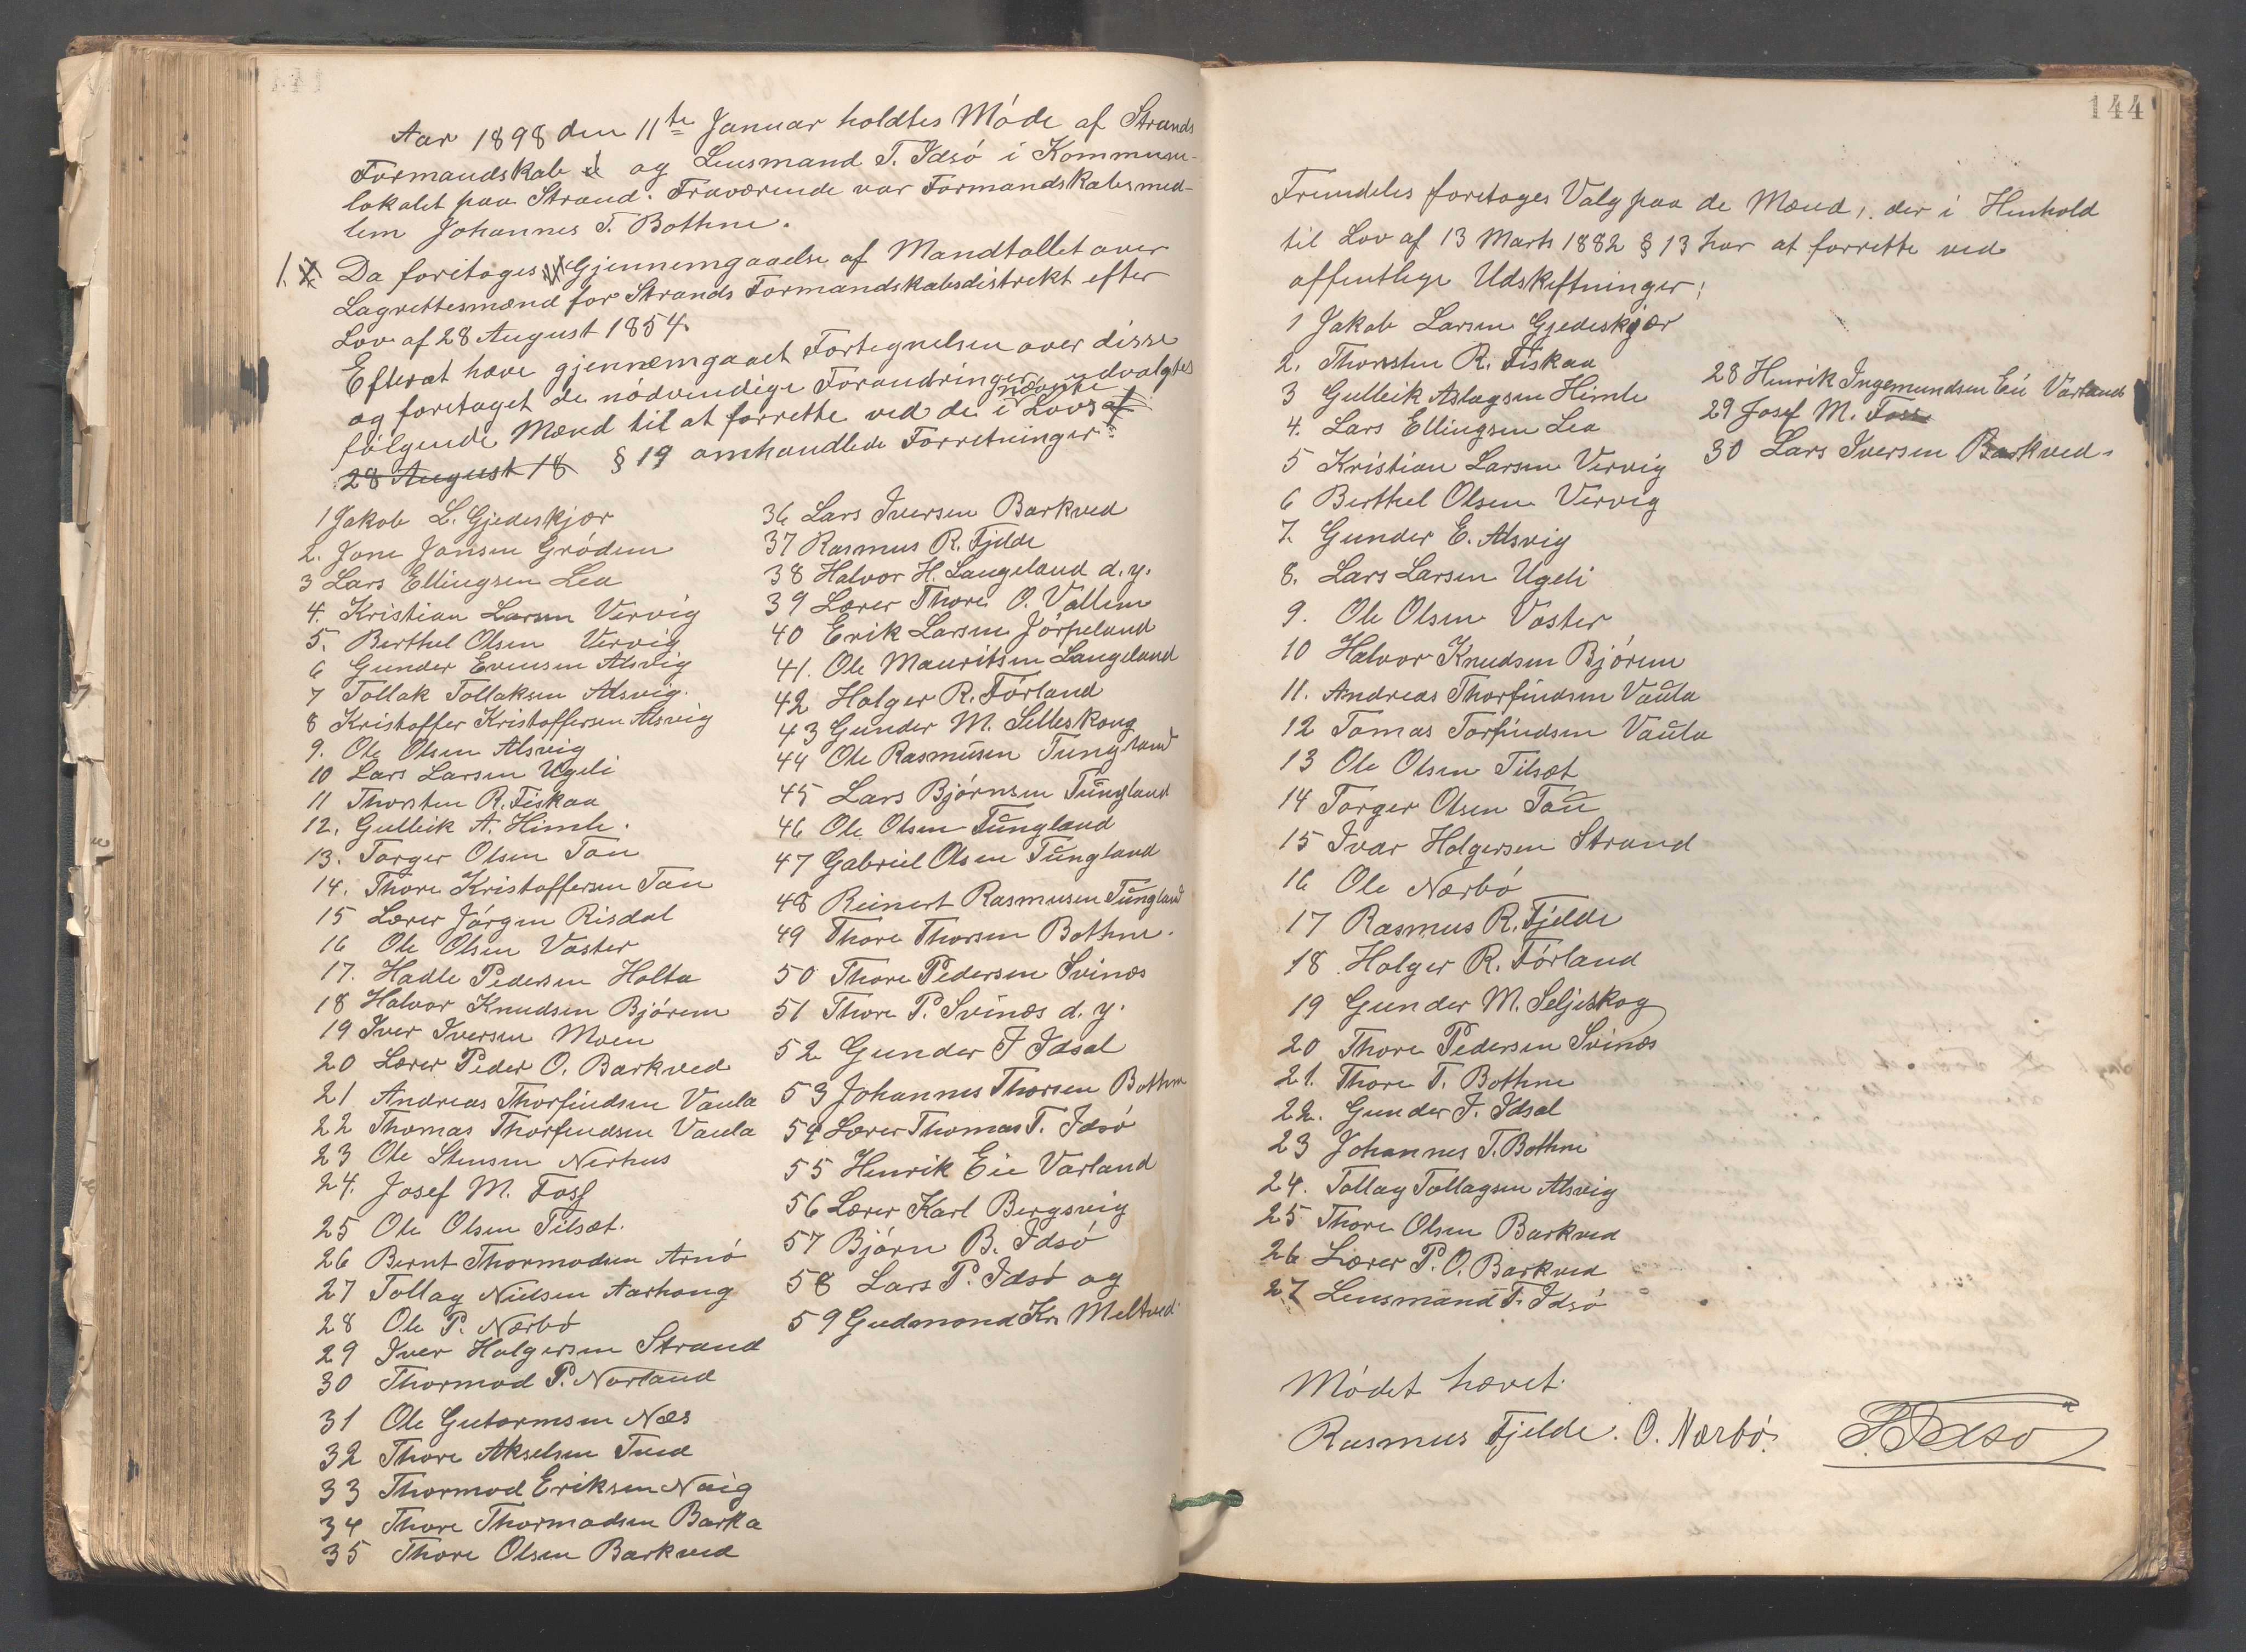 Aar 1898 den 11te Januar holdtes Möde af Strands
Formandskab og Lensmand T. Idsö i Kommune-
lokalet paa Strand. Fraværende var Formandskabsmed-
lem Johannes T. Bothne.
1. Da foretoges Gjennemgaaelse af Mandtallet over
Lagrettesmænd for Strands Formandskabsdistrekt efter
Lov af 28 August 1854.
Efterat have gjennemgaaet Fortegnelsen over disse
og foretaget de nödvendige Forandringer, udvalgtes
følgende Mænd til at forrette ved de i nævnte Lovs af
28 August 18 § 19 omhandlede Forretninger:
1 Jakob L. Gjedeskjær
2. Jone Jonsen Grödem
3 Lars Ellingsen Lea
4. Kristian Larsen Vervig
5. Berthel Olsen Vervig
6 Gunder Evensen Alsvig
7 Tollak Tollaksen Alsvig.
8 Kristoffer Kristoffersen Alsvig
9. Ole Olsen Alsvig
10 Lars Larsen Ugeli
11 Thorsten R. Fiskaa
12. Gulleik A. Himle.
13. Torger Olsen Tau
14. Thore Kristoffersen Tau
15 Lærer Jörgen Risdal
16 Ole Olsen Voster
17. Hadle Pedersen Holta
18 Halvor Knudsen Björeim
19 Iver Iversen Moen
20 Lærer Peder O. Barkved
21 Andreas Thorfindsen Vaula
22 Thomas Thorfindsen Vaula
23 Ole Stensen Nerhus
24. Josef M. Foss
25 Ole Olsen Tilsæt.
26 Bernt Thormodsen Arnö
27 Tollag Nilsen Aarhoug
28 Ole P. Nærbö
29 Iver Holgersen Strand
30 Thormod P. Norland
31 Ole Gutormsen Næs
32 Thore Akselsen Tveid
33 Thormod Eriksen Nøig
34 Thore Thormodsen Barka
35 Thore Olsen Barkved
36 Lars Iversen Barkved
37 Rasmus R. Fjelde
38 Halvor H. Langeland d.y.
39 Lærer Thore O. Vallem
40 Erik Larsen Jörpeland
41. Ole Mauritsen Langeland
42 Holger R. Förland
43 Gunder M. Selleskoug
44 Ole Rasmusen Tungland
45 Lars Björnsen Tungland
46 Ole Olsen Tungland
47 Gabriel Olsen Tungland
48 Reinert Rasmusen Tungland
49 Thore Thorsen Bothne.
50 Thore Pedersen Svines
51 Thore P. Svines d.y.
52 Gunder J Idsal
53 Johannes Thorsen Bothne
54 Lærer Thomas T. Idsö
55 Henrik Eie Varland
56 Lærer Karl Bergsvig
57 Björn B. Idsö
58 Lars P. Idsö og
59 Gudmond Kr. Meltved.
144
Fremdeles foretoges Valg paa de Mænd, der i Henhold
til Lov af 13 Marts 1882 § 13 har at forrette ved
offentlige Udskiftninger;
1 Jakob Larsen Gjedeskjær
2. Thorsten R. Fiskaa
3 Gulleik Aslagsen Himle
4. Lars Ellingsen Lea
5 Kristian Larsen Vervig
6 Berthel Olsen Vervig
7. Gunder E. Alsvig
8. Lars Larsen Ugeli
9. Ole Olsen Voster
10 Halvor Knudsen Björeim
11. Andreas Thorfindsen Vaula
12 Tomas Torfindsen Vaula
13 Ole Olsen Tilsæt
14 Torger Olsen Tau
15 Ivar Holgersen Strand
16 Ole Nærbö
17 Rasmus R. Fjelde
18 Holger R. Förland
19 Gunder M. Seljeskog
20 Thore Pedersen Svines
21. Thore T. Bothne
22. Gunder J. Idsal
23 Johannes T. Bothne
24. Tollag Tollagsen Alsvig
25 Thore Olsen Barkved
26 Lærer P. O. Barkved
27 Lensmand T. Idsö
28 Henrik Ingemundsen Eie Varland
29 Josef M. Foss
30 Lars Iversen Barkved.
Mödet hævet.
Rasmus Fjelde. O. Nærbö. T. Idsö